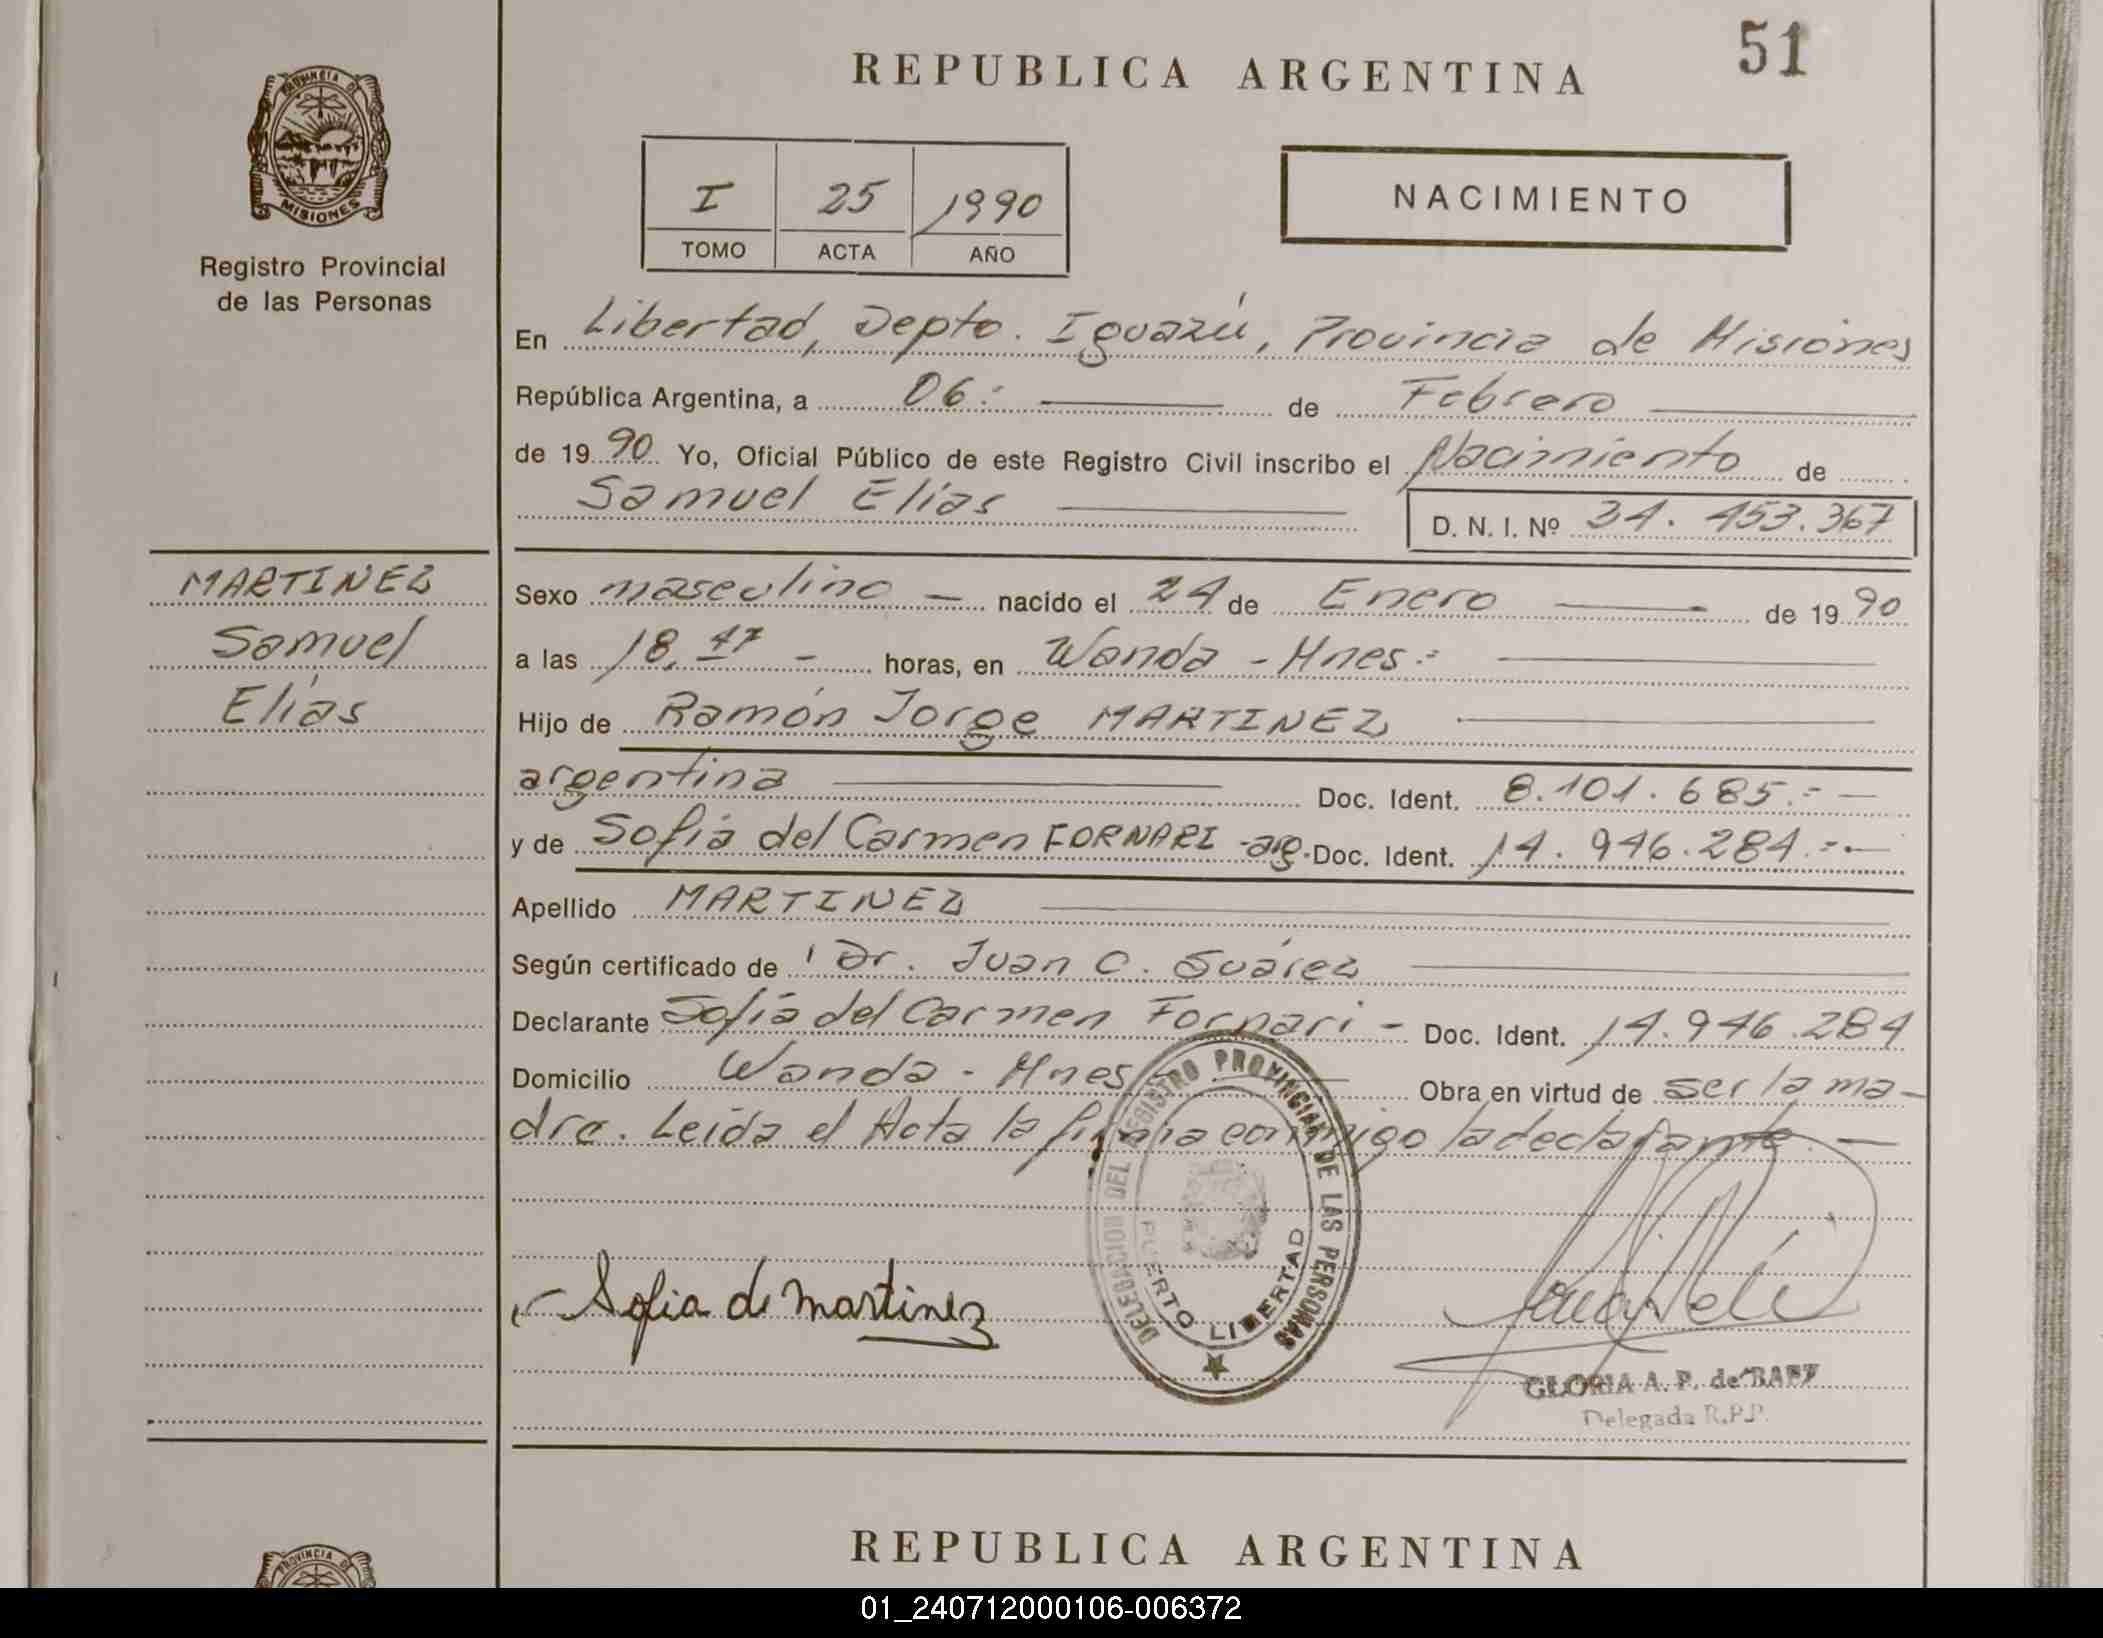 51
REPUBLICA ARGENTINA
PROVINCIA DE
MISIONES
Registro Provincial
de las Personas
I 25 1990
TOMO ACTA AÑO
NACIMIENTO
En Libertad, Depto. Iguazú, Provincia de Misiones
República Argentina, a 06.- de Febrero
de 1990 Yo, Oficial Público de este Registro Civil inscribo el Nacimiento de
Samuel Elías D. N. I. Nº 34.453.367
MARTINEZ
Samuel
Elías
Sexo masculino — nacido el 24 de Enero de 1990
a las 18,47 - horas, en Wanda - Mnes.-
Hijo de Ramón Jorge MARTINEZ
argentina Doc. Ident. 8.101.685.- —
y de Sofía del Carmen FORNARI -arg. Doc. Ident. 14.946.284.- —
Apellido MARTINEZ
Según certificado de Dr. Juan C. Suárez
Declarante Sofía del Carmen Fornari - Doc. Ident. 14.946.284
Domicilio Wanda - Mnes.- Obra en virtud de ser la ma-
dre. Leída el Acta la firma conmigo la declarante. —
DELEGACION DEL REGISTRO PROVINCIAL DE LAS PERSONAS
PUERTO LIBERTAD
Sofia de Martinez
GLORIA A. P. de
Delegada R.P.P.
REPUBLICA ARGENTINA
PROVINCIA DE
01_240712000106-006372